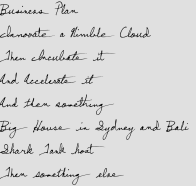 Business Plan
Innovate a Nimble Cloud
Then Incubate it
And Accelerate it
And then something
Big House in Sydney and Bali
Shark Tank host
Then something else